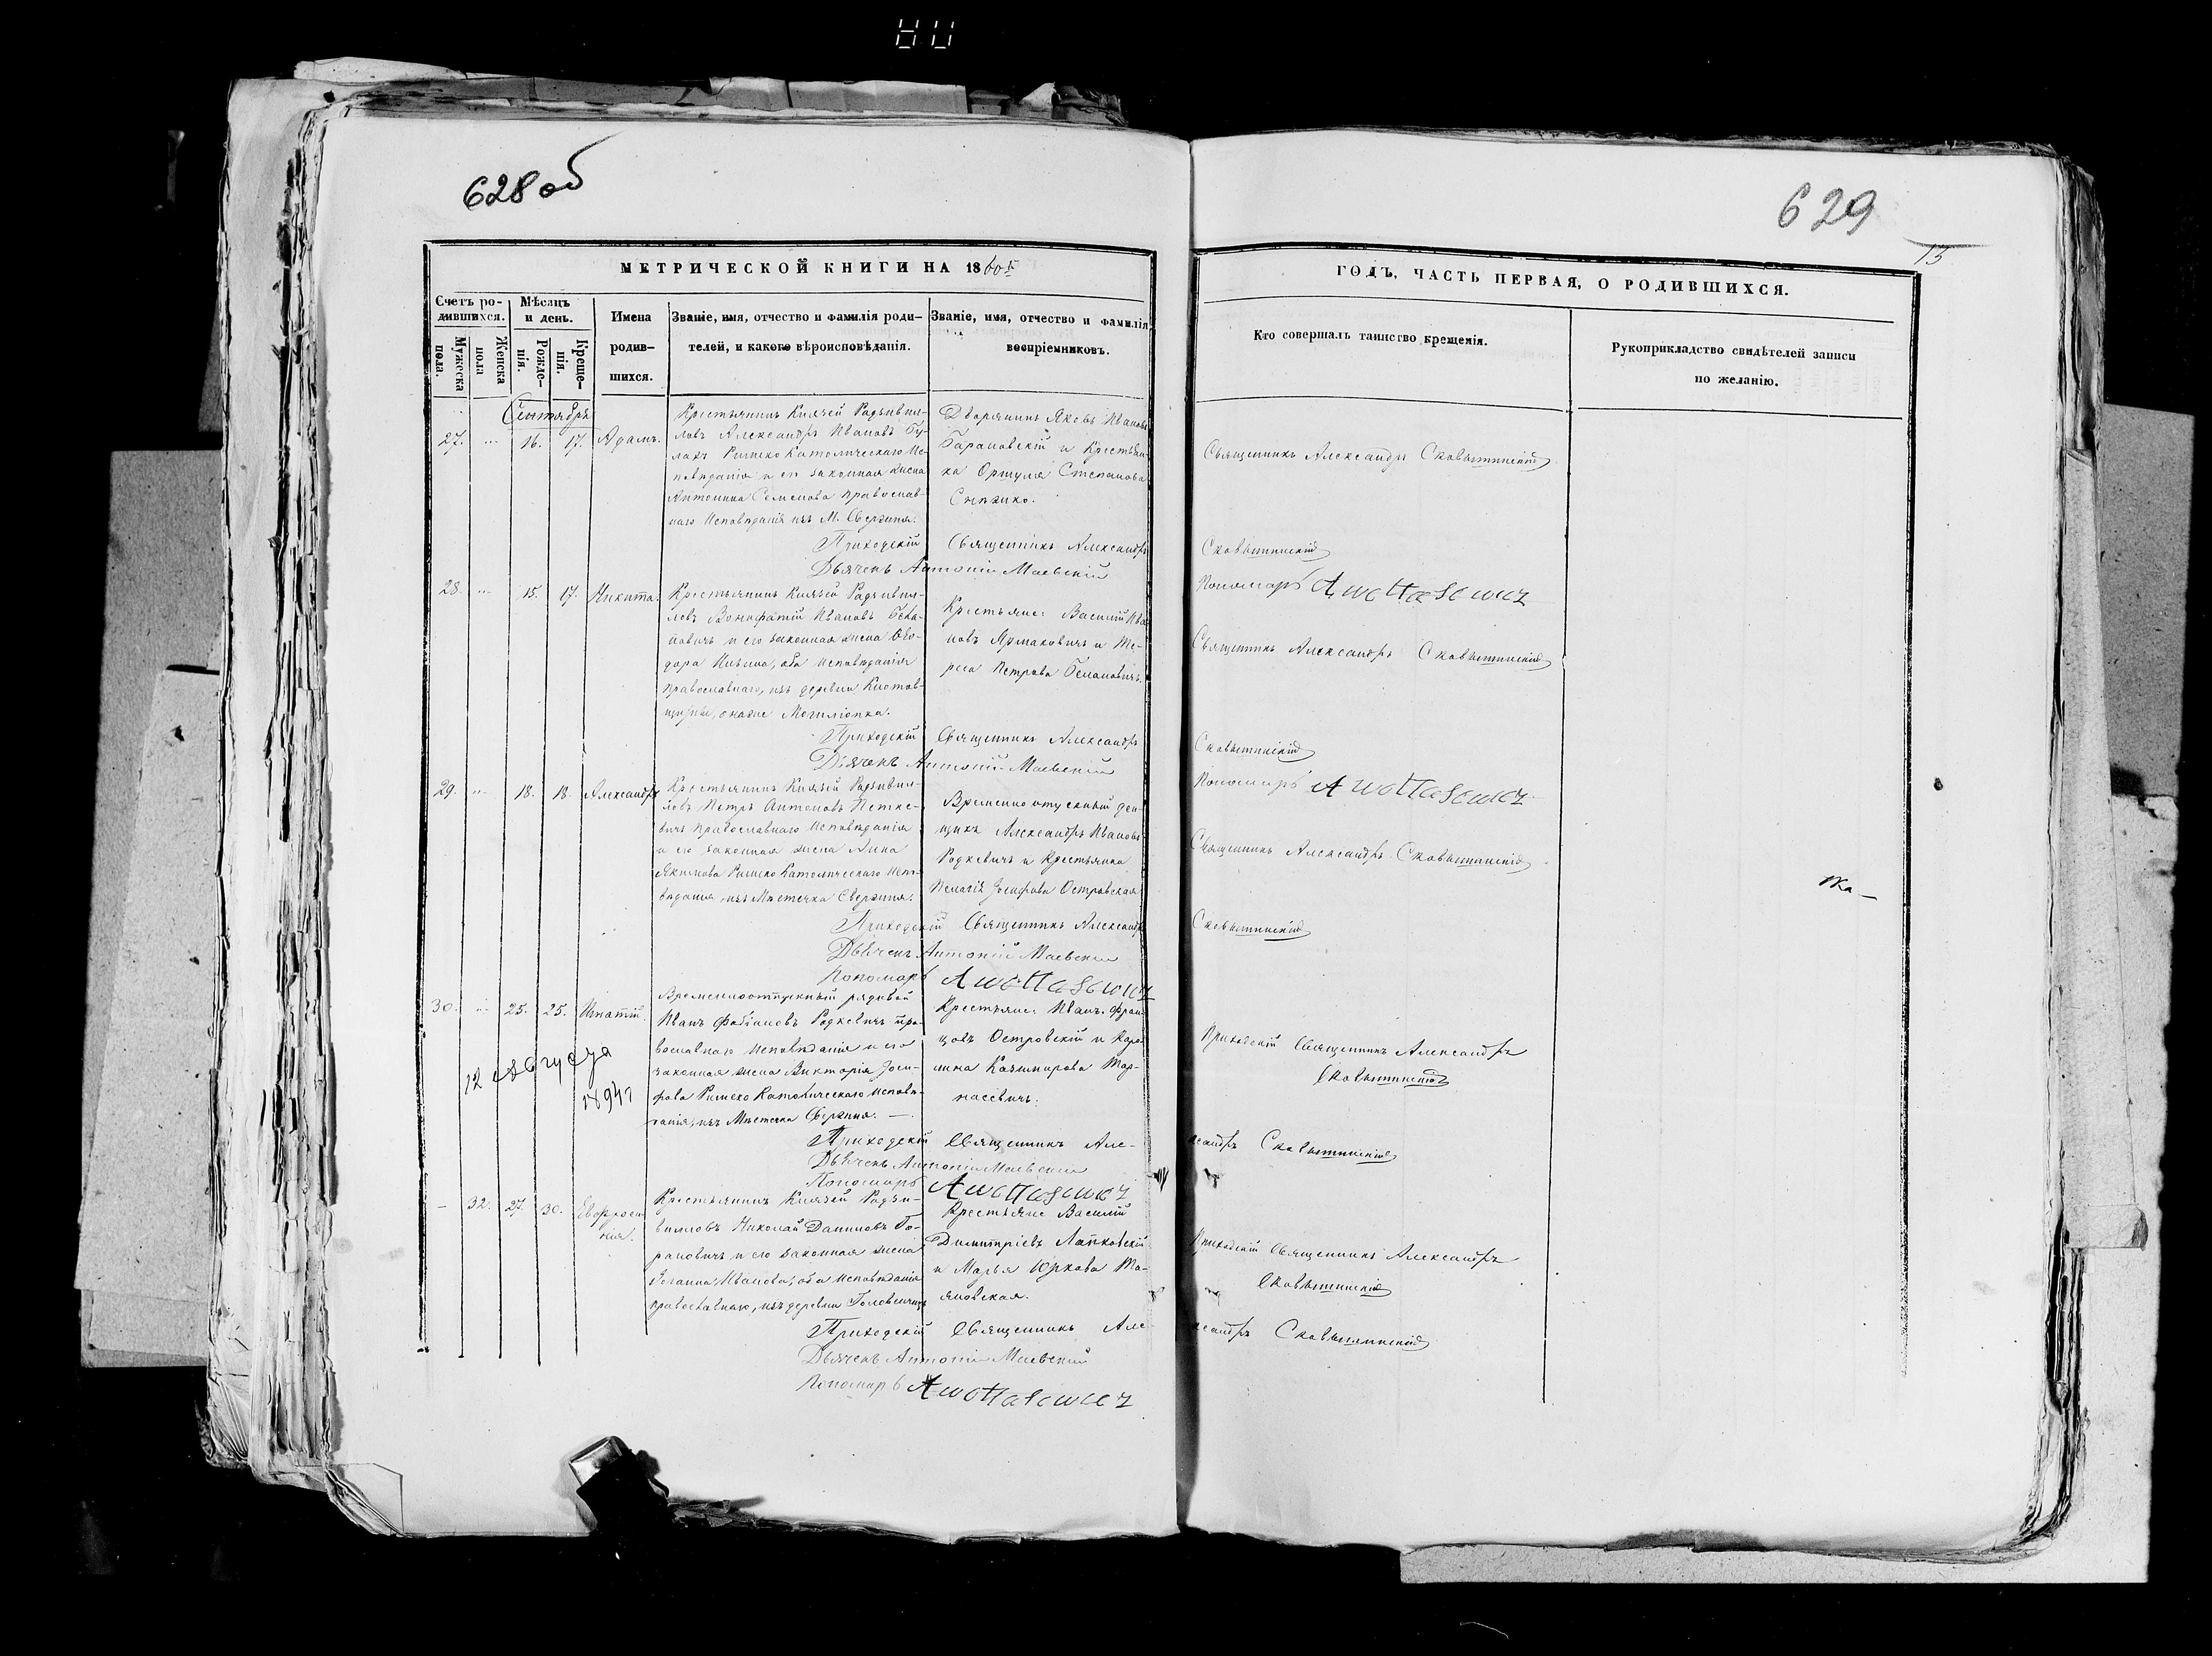 628 об
629
13
МЕТРИЧЕСКОЙ КНИГИ НА 1860й
ГОДЪ, ЧАСТЬ ПЕРВАЯ, О РОДИВШИХСЯ.
Счетъ ро-
дившихся.
Мужеска
пола.
Женска
пола
Мѣсяцъ
и день.
Рожде-
нія.
Креще-
нія.
Имена
родив-
шихся.
Званіе, имя, отчество и фамилія роди-
телей, и какого вѣроисповѣданія.
Званіе, имя, отчество и фамилія
воспріемниковъ.
Кто совершалъ таинство крещенія.
Рукоприкладство свидѣтелей записи
по желанію.
Сентябрь
27. 16. 17. Адамъ.
Крестьянинъ Князей Радзивил-
ловъ Александръ Ивановъ Бу-
лахъ Римско Католическаго Ис-
повѣданія и его законная жена
Антонина Семенова Православ-
наго Исповѣданія изъ М. Свержня.
Дворянинъ Яковъ Ивановъ
Барановскій и Крестьян-
ка Оршуля Степанова
Священникъ Александръ
Приходскій Священникъ Александръ
Дьячекъ Антоній Маевскій
Пономарь
28. 15. 17. Никита.
Крестьянинъ Князей Радзивил-
ловъ Вонифатій Ивановъ
и его законная жена Ѳео-
дора Ильина, оба исповѣданія
православнаго, изъ деревни
Крестьяне: Василій Ива-
новъ Ярмаковичъ и Те-
реса Петрова
Священникъ Александръ
Приходскій Священникъ Александръ
Дьячекъ Антоній Маевскій
Пономарь
29. 18. 18. Александръ
Крестьянинъ Князей Радзивил-
ловъ Петръ Антоновъ Петке-
вичъ Православнаго Исповѣданія
и его законная жена Анна
Якимова Римско Католическаго Испо-
вѣданія, изъ Мѣстечка Свержня.
Временно отпускный ден-
щикъ Александръ Ивановъ
Родкевичъ и Крестьянка
Пелагія Іосифова Островская
Священникъ Александръ
Приходскій Священникъ Александръ
Дьячекъ Антоній Маевскій
Пономарь
30. 25. 25. Игнатій.
12 августа
1894г
Временноотпускный рядовой
Иванъ Фабіановъ Родкевичъ пра-
вославнаго исповѣданія и его
законная жена Викторія Іоси-
фова Римско Католическаго Исповѣ-
данія, изъ Мѣстечка Свержня.
Крестьяне: Иванъ Фран-
цовъ Островскій и Каро-
лина Казимирова Тар-
насевичъ.
Приходскій Священникъ Александръ
Приходскій Священникъ Але-
ксандръ
Дьячекъ Антоній Маевскій
Пономарь
32. 27. 30.
Крестьянинъ Князей Радзи-
вилловъ Николай Даниловъ
и его законная жена
Іоанна Иванова, оба исповѣданія
православнаго, изъ деревни
Крестьяне Василій
Димитріевъ Лапковскій
и Марья Юркова
Приходскій Священникъ Александръ
Приходскій Священникъ Але-
ксандръ
Дьячекъ Антоній Маевскій
Пономарь